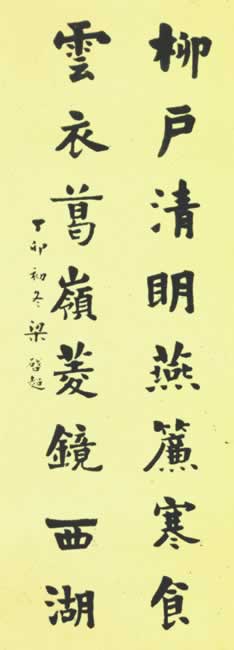 柳戶清明燕簾寒食
雲衣葛嶺菱鏡西湖
丁卯初冬 梁啓超